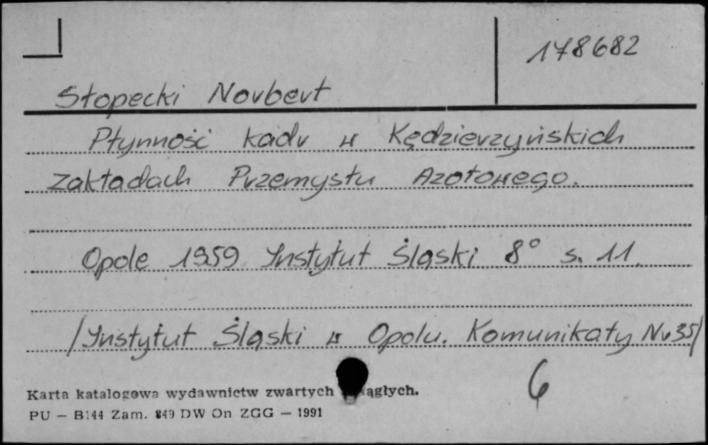 178682
Stopecki Norbert
Płynność kadr w Kędzierzyńskich
Zakładach Przemysłu Azotowego.
Opole 1959 Instytut Śląski 8° s. 11.
/Instytut Śląski w Opolu. Komunikaty Nr 35/
6
Karta katalogowa wydawnictw zwartych ągłych.
PU — B144 Zam. 849 DW Op ZGG — 1991